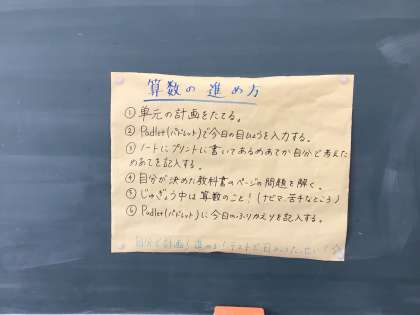 算数の進め方
①単元の計画をたてる。
②Padlet(パドレット)で今日の目ひょうを入力する。
③ノートにプリントに書いてあるめあてか自分で考えた
めあてを記入する。
④自分が決めた教科書のページの問題を解く。
⑤じゅぎょう中は算数のこと!(ナビマ、苦手なところ)
⑥Padlet(パドレット)に今日のふりかえりを記入する。
自分で計画!進める!テストで